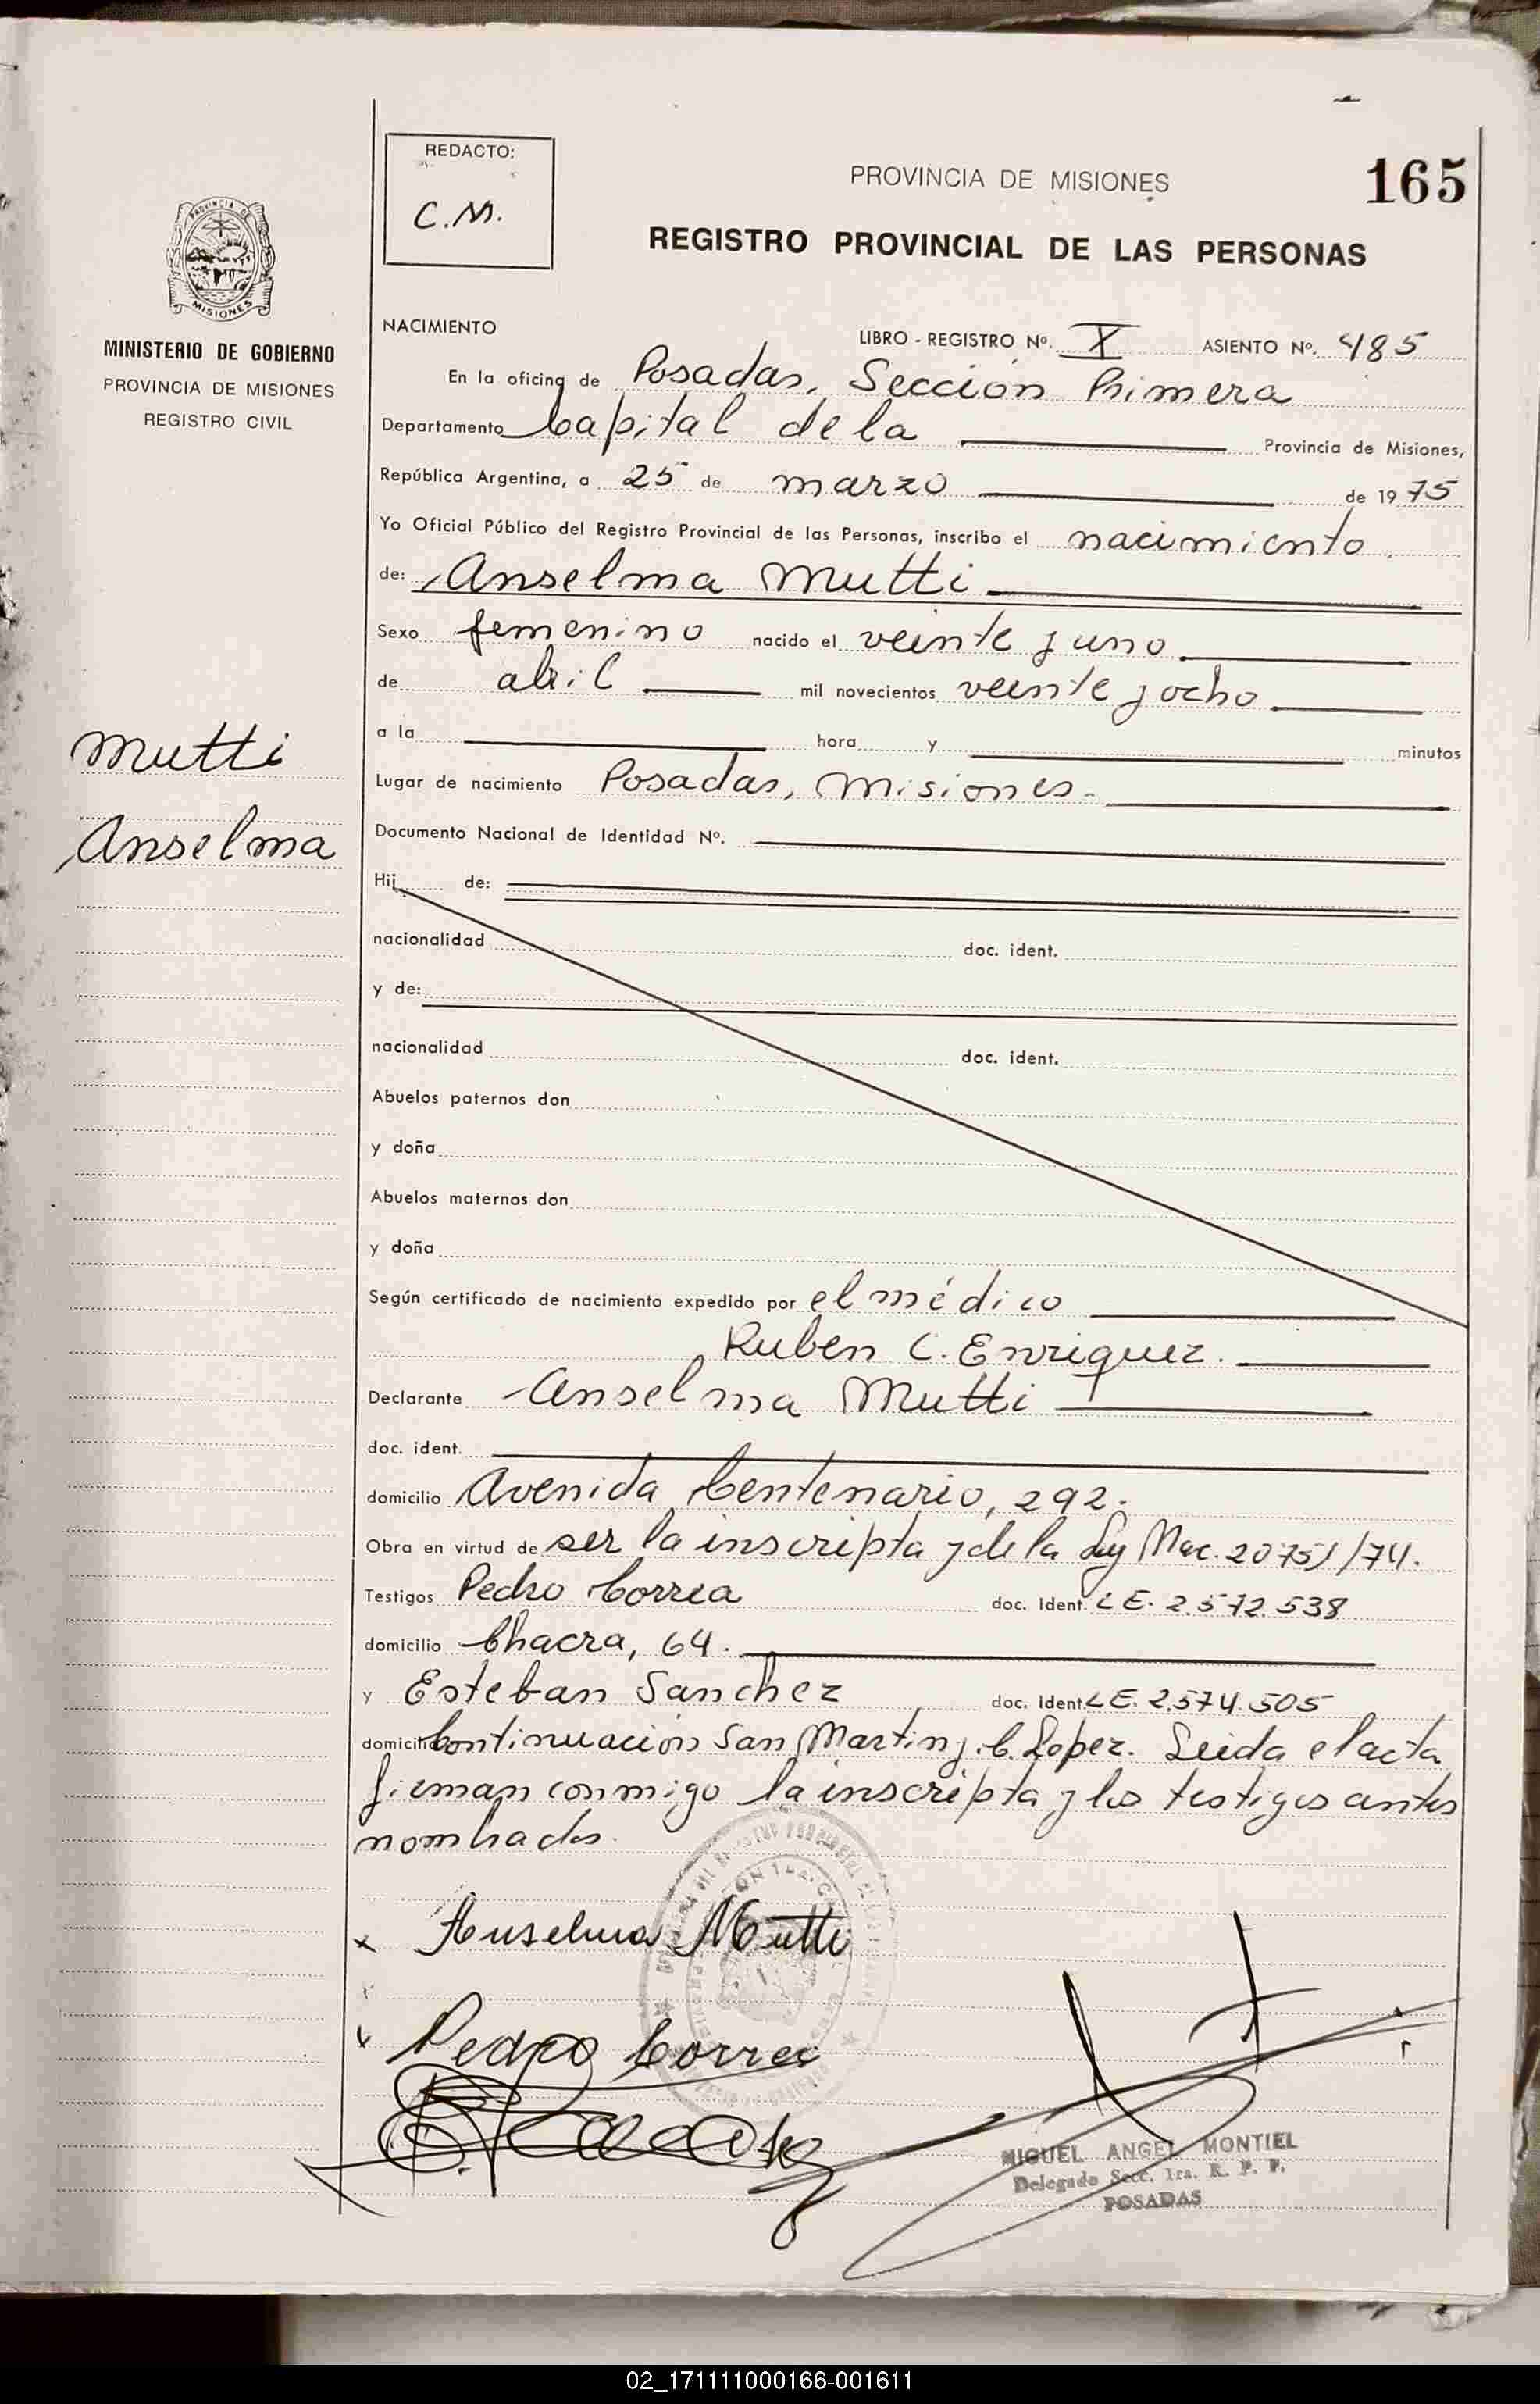 REDACTO:
C.M.
PROVINCIA DE MISIONES
165
REGISTRO PROVINCIAL DE LAS PERSONAS
PROVINCIA DE
MISIONES
MINISTERIO DE GOBIERNO
PROVINCIA DE MISIONES
REGISTRO CIVIL
NACIMIENTO LIBRO - REGISTRO Nº. X ASIENTO Nº. 485
En la oficina de Posadas, Sección Primera
Departamento Capital de la Provincia de Misiones,
República Argentina, a 25 de marzo de 1975
Yo Oficial Público del Registro Provincial de las Personas, inscribo el nacimiento
de: Anselma Mutti
Sexo femenino nacido el veinte y uno
de abril mil novecientos veinte y ocho
a la hora y minutos
Mutti
Lugar de nacimiento Posadas, Misiones.-
Anselma
Documento Nacional de Identidad Nº.
Hij de:
nacionalidad doc. ident.
y de:
nacionalidad doc. ident.
Abuelos paternos don
y doña
Abuelos maternos don
y doña
Según certificado de nacimiento expedido por el médico
Ruben C. Enriquez.
Declarante Anselma Mutti
doc. ident.
domicilio Avenida Centenario, 292.
Obra en virtud de ser la inscripta y de la Ley Nac. 20751/74.
Testigos Pedro Correa doc. Ident. L E. 2.572.538
domicilio Chacra, 64.
y Esteban Sanchez doc. Ident L E. 2.574.505
domicilio Continuación San Martin y C. Lopez. Leida el acta
firman conmigo la inscripta y los testigos antes
nombrados.
x Anselma Mutti
x Pedro Correa
MIGUEL ANGEL MONTIEL
Delegado Secc. 1ra. R. P. P.
POSADAS
02_171111000166-001611